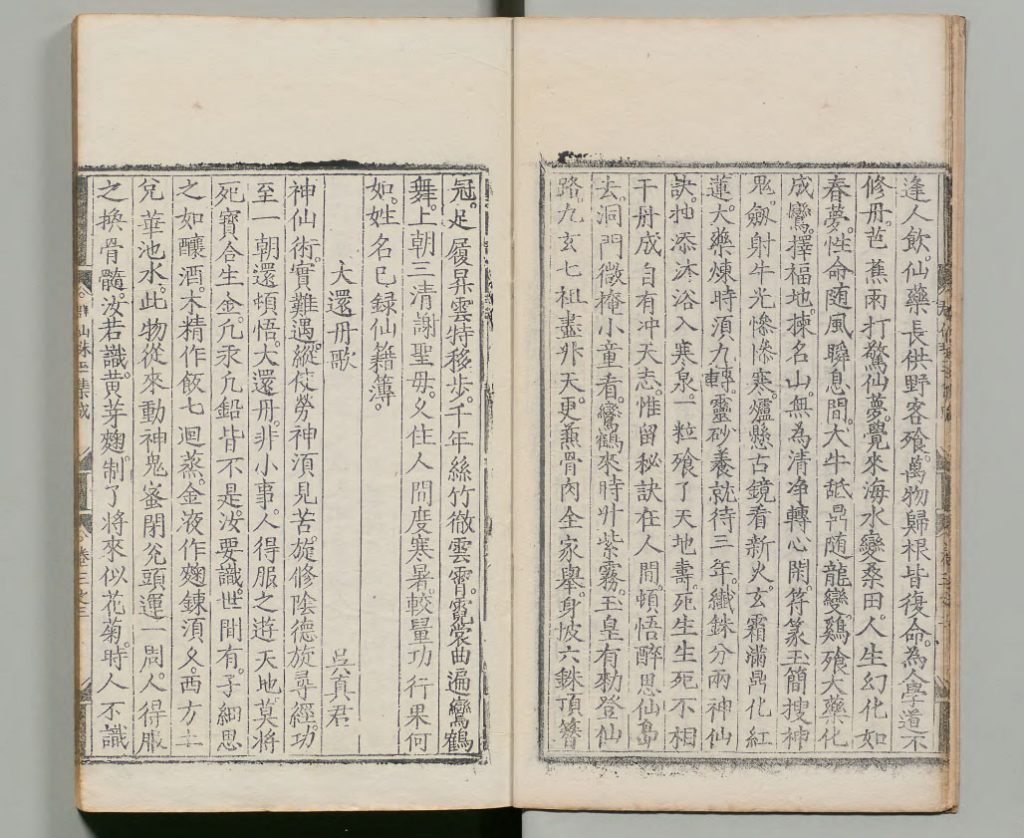 逢人飲。仙藥長供野客飱。萬物歸根皆復命。為人學道不
修丹。芭蕉雨打驚仙夢。覺來海水變桑田。人生幻化如
春夢。性命随風瞬息間。大牛舐鼎随龍變。鷄飱大藥化
成鸞。擇福地。揀名山。無為清净轉心閑。符篆玉簡搜神
鬼。劔射牛光慘慘寒。爐懸古鏡看新火。玄霜滿鼎化紅
蓮。大藥煉時須九轉。靈砂養就待三年。纖銖分兩神仙
訣。抽添沐浴入寒泉。一粒飱了天地壽。死生生死不相
干。丹成自有冲天志。惟留秘訣在人間。頓悟醉思仙島
去。洞門微掩小童看。鸞鶴來時升紫霧。玉皇有勑登仙
路。九玄七祖盡升天。更兼骨肉全家舉。身披六銖頂簪
冠。足履昇雲特移步。千年絲竹徹雲霄。霓裳曲遍鸞鶴
舞。上朝三清謝聖毋。久住人間度寒暑。較量功行果何
如。姓名已録仙籍簿。
大還丹歌
吳真君
神仙術。實難遇。縱使勞神須見苦。旋修陰德旋尋經。功
至一朝還頓悟。大還丹。非小事。人得服之遊天地莫將
死寶合生金。凢汞凢鉛皆不是。汝要識。世間有。子細思
之如釀酒。木精作飯七迴蒸。金液作麴鍊須久。西方士
兌華池水。此物從來動神鬼。蜜閉兌頭運一周。人得服
之換骨髓。汝若識。黄芽麴。制了將來似花菊。時人不識
羣仙珠玉集成
卷三之三